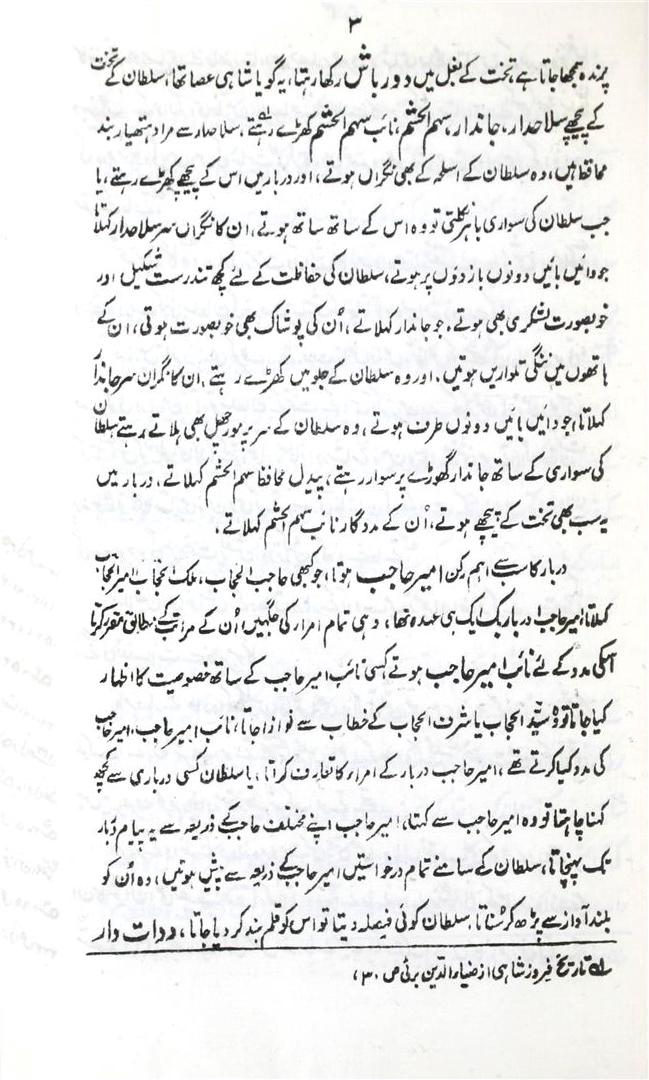 ۳
پرندہ سمجھا جاتا ہے، تخت کے بغل میں دور باش رکھا رہتا، یہ گویا شاہی عصا تھا، سلطان کے تخت
کے پیچھے سلاحدار، جاندار، سہم الحشم، نائب سہم الحشم کھڑے رہتے، سلاحدار سے مراد ہتھیار بند
محافظ ہیں، وہ سلطان کے اسلحہ کے بھی نگراں ہوتے، اور دربار میں اس کے پیچھے کھڑے رہتے، یا
جب سلطان کی سواری باہر نکلتی تو وہ اس کے ساتھ ساتھ ہوتے، ان کا نگراں سر سلاحدار کہلاتا
جو دائیں بائیں دونوں بازوؤں پر ہوتے، سلطان کی حفاظت کے لئے کچھ تندرست شکیل اور
خوبصورت لشکری بھی ہوتے، جو جاندار کہلاتے، اُن کی پوشاک بھی خوبصورت ہوتی، ان کے
ہاتھوں میں ننگی تلواریں ہوتیں، اور وہ سلطان کے جلو میں کھڑے رہتے، ان کا نگران سر جاندار
کہلاتا، جو دائیں بائیں دونوں طرف ہوتے، وہ سلطان کے سر پر مورچھل بھی ہلاتے رہتے سلطان
کی سواری کے ساتھ جاندار گھوڑے پر سوار رہتے، پیدل محافظ سہم الحشم کہلاتے، دربار میں
یہ سب بھی تخت کے پیچھے ہوتے، اُن کے مددگار نائب سہم الحشم کہلاتے،
دربار کا سب سے اہم رکن امیر حاجب ہوتا، جو کبھی حاجب الحجاب، ملک الحجاب امیر الحجاب
کہلاتا امیر حاجب اور باربک ایک ہی عہدہ تھا، وہی تمام امراء کی جگہیں اُن کے مراتب کے مطابق مقرر کرتا
اسکی مدد کے لئے نائب امیر حاجب ہوتے کسی نائب امیر حاجب کے ساتھ خصوصیت کا اظہار
کیا جاتا تو وہ سید الحجاب یا شرف الحجاب کے خطاب سے نوازا جاتا، نائب امیر حاجب، امیر حاجب
کی مدد کیا کرتے تھے، امیر حاجب دربار کے امراء کا تعارف کراتا، یا سلطان کسی درباری سے کچھ
کہنا چاہتا تو وہ امیر حاجب سے کہتا، امیر حاجب اپنے مختلف حاجب کے ذریعہ سے یہ پیام دربار
تک پہنچاتا، سلطان کے سامنے تمام درخواستیں امیر حاجب کے ذریعہ سے پیش ہوتیں، وہ اُن کو
بلند آواز سے پڑھ کر سُناتا، سلطان کوئی فیصلہ دیتا تو اس کو قلم بند کر دیا جاتا، دوات دار
لہ تاریخ فیروز شاہی از ضیاء الدین برنی ص ۳۰،